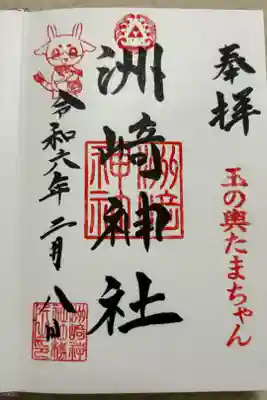 奉拝
玉の輿たまちゃん
洲崎神社
洲崎神社
令和六年二月八日